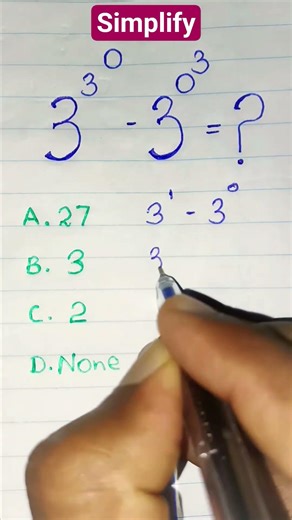 Simplify
3^3^0 - 3^0^3 = ?
A. 27 3^1 - 3^0
B. 3 3
C. 2
D. None